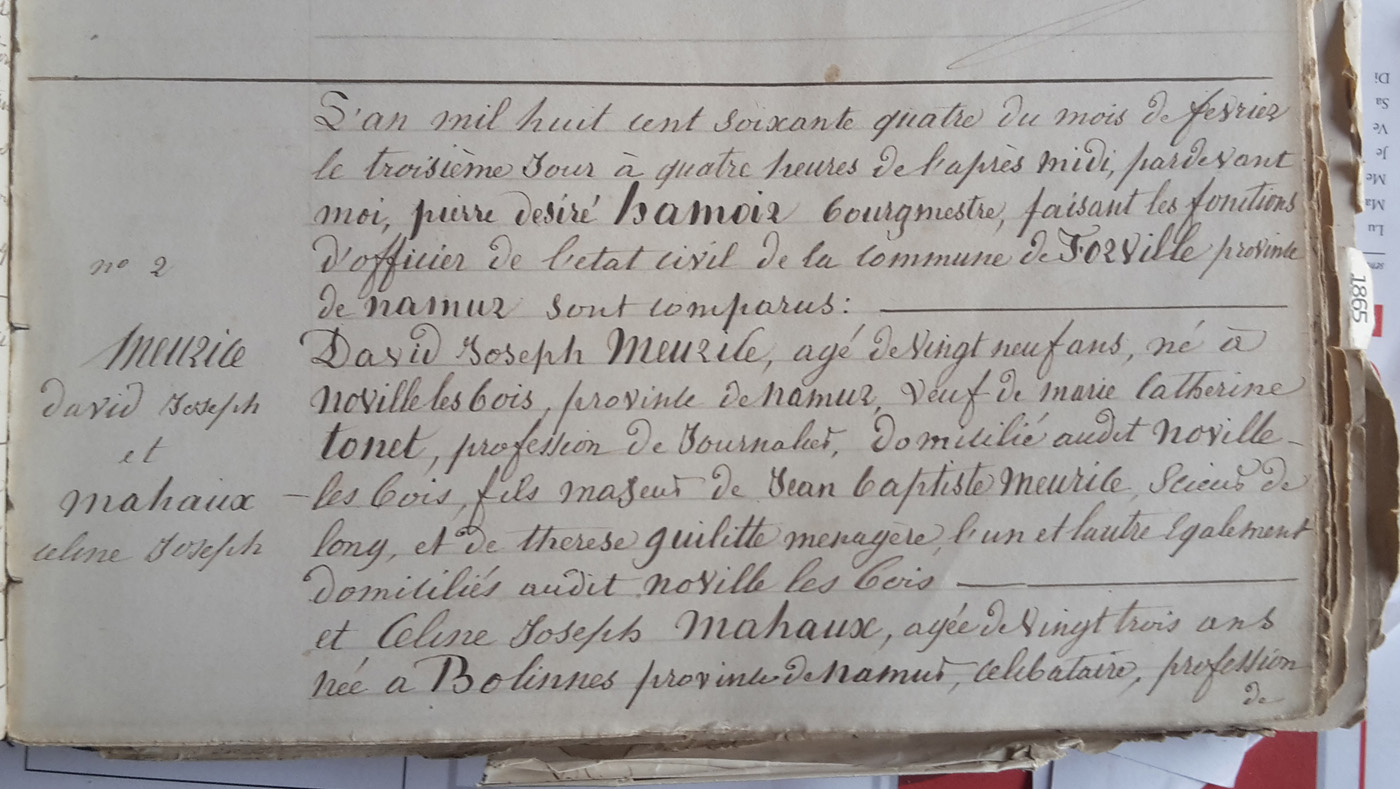 L'an mil huit cent soixante quatre du mois de fevrier
le troisième Jour à quatre heures de l'après midi, pardevant
moi, pierre desiré hamoir bourgmestre, faisant les fonctions
n° 2
d'officier de l'etat civil de la commune de Forville province
de namur sont comparus:
Meurice
David Joseph Meurice, agé de Vingt neuf ans, né à
david Joseph
noville les bois, province de namur, veuf de marie Catherine
et
tonet, profession de Journalier, domicilié audit noville-
mahaux
les bois, fils majeur de Jean baptiste Meurice, Scieur de
celine Joseph
long, et de therese guilitte menagère, l'un et lautre Egalement
domiciliés audit noville les bois
et Celine Joseph Mahaux, agée de Vingt trois ans
née a Bolinnes province de namur, celibataire, profession
de
1865
Di
Sa
Ve
Je
Me
Ma
Lu